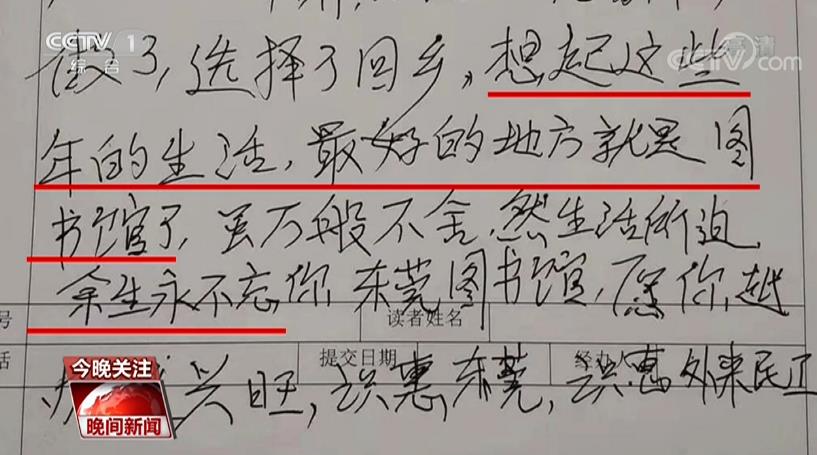 CCTV 1
综合
高清
CCTV.com
做了,选择了回乡,想起这些
年的生活,最好的地方就是图
书馆了,虽万般不舍,然生活所迫,
余生永不忘你,东莞图书馆,愿你越
号 读者姓名
话 提交日期 经办人
办 兴旺,识惠东莞,识惠外来民工
今晚关注
晚间新闻